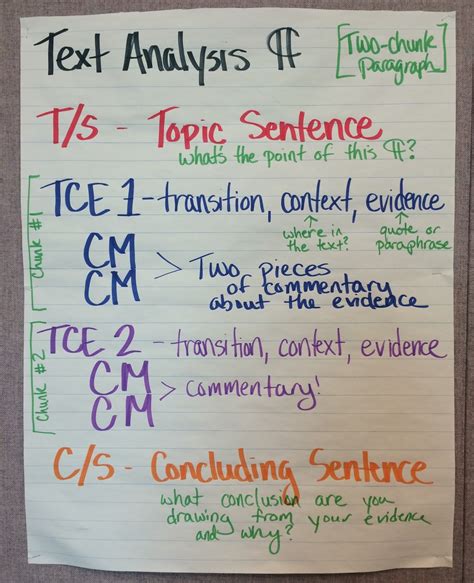 Text Analysis ¶
[Two-chunk
Paragraph]
T/S - Topic Sentence
what's the point of this ¶?
Chunk #1
TCE 1 - transition, context, evidence
where in
the text?
quote or
paraphrase
CM
CM
> Two pieces
of commentary
about the evidence
Chunk #2
TCE 2 - transition, context, evidence
CM
CM
> commentary!
C/S - Concluding Sentence
what conclusion are you
drawing from your evidence
and why?